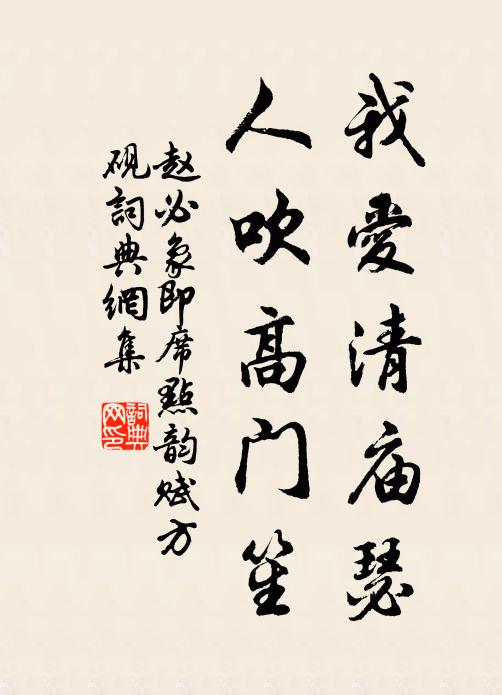 我愛清庙瑟
人吹高门笙
赵必象即席點韵赋方
砚詞典網集
詞典
网印